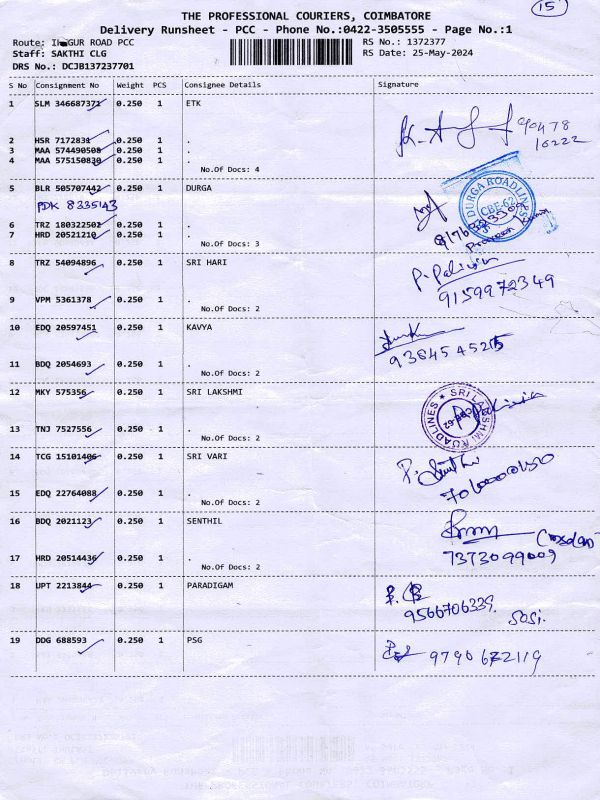 15
THE PROFESSIONAL COURIERS, COIMBATORE
Delivery Runsheet - PCC - Phone No.:0422-3505555 - Page No.:1
Route: GUR ROAD PCC RS No.: 1372377
Staff: SAKTHI CLG RS Date: 25-May-2024
DRS No.: DCJB137237701
S No Consignment No Weight PCS Consignee Details Signature
1 SLM 346687371 0.250 1 ETK
2 HSR 7172831 0.250 1 .
3 MAA 574490508 0.250 1 .
4 MAA 575150830 0.250 1 .
No.Of Docs: 4
5 BLR 505707442 0.250 1 DURGA
DURGA ROADLINES
CBE-62
PDK 8335143
6 TRZ 180322502 0.250 1 .
7 HRD 20521210 0.250 1 .
No.Of Docs: 3
8 TRZ 54094896 0.250 1 SRI HARI
9159972349
9 VPM 5361378 0.250 1 .
No.Of Docs: 2
10 EDQ 20597451 0.250 1 KAVYA
11 BDQ 2054693 0.250 1 .
No.Of Docs: 2
12 MKY 575356 0.250 1 SRI LAKSHMI
SRI LAKSHMI ROADLINES
13 TNJ 7527556 0.250 1 .
No.Of Docs: 2
14 TCG 15101406 0.250 1 SRI VARI
15 EDQ 22764088 0.250 1 .
No.Of Docs: 2
16 BDQ 2021123 0.250 1 SENTHIL
7373099009
17 HRD 20514436 0.250 1 .
No.Of Docs: 2
18 UPT 2213844 0.250 1 PARADIGAM
9566706339
19 DDG 688593 0.250 1 PSG
9790672119